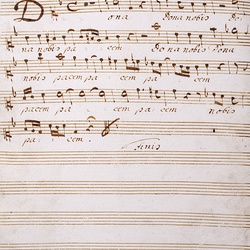 Dona dona nobis
na nobis pa cem do na nobis dona
nobis pacem pa cem pa cem
pacem pa cem pa cem nobis
pa cem.
Finis